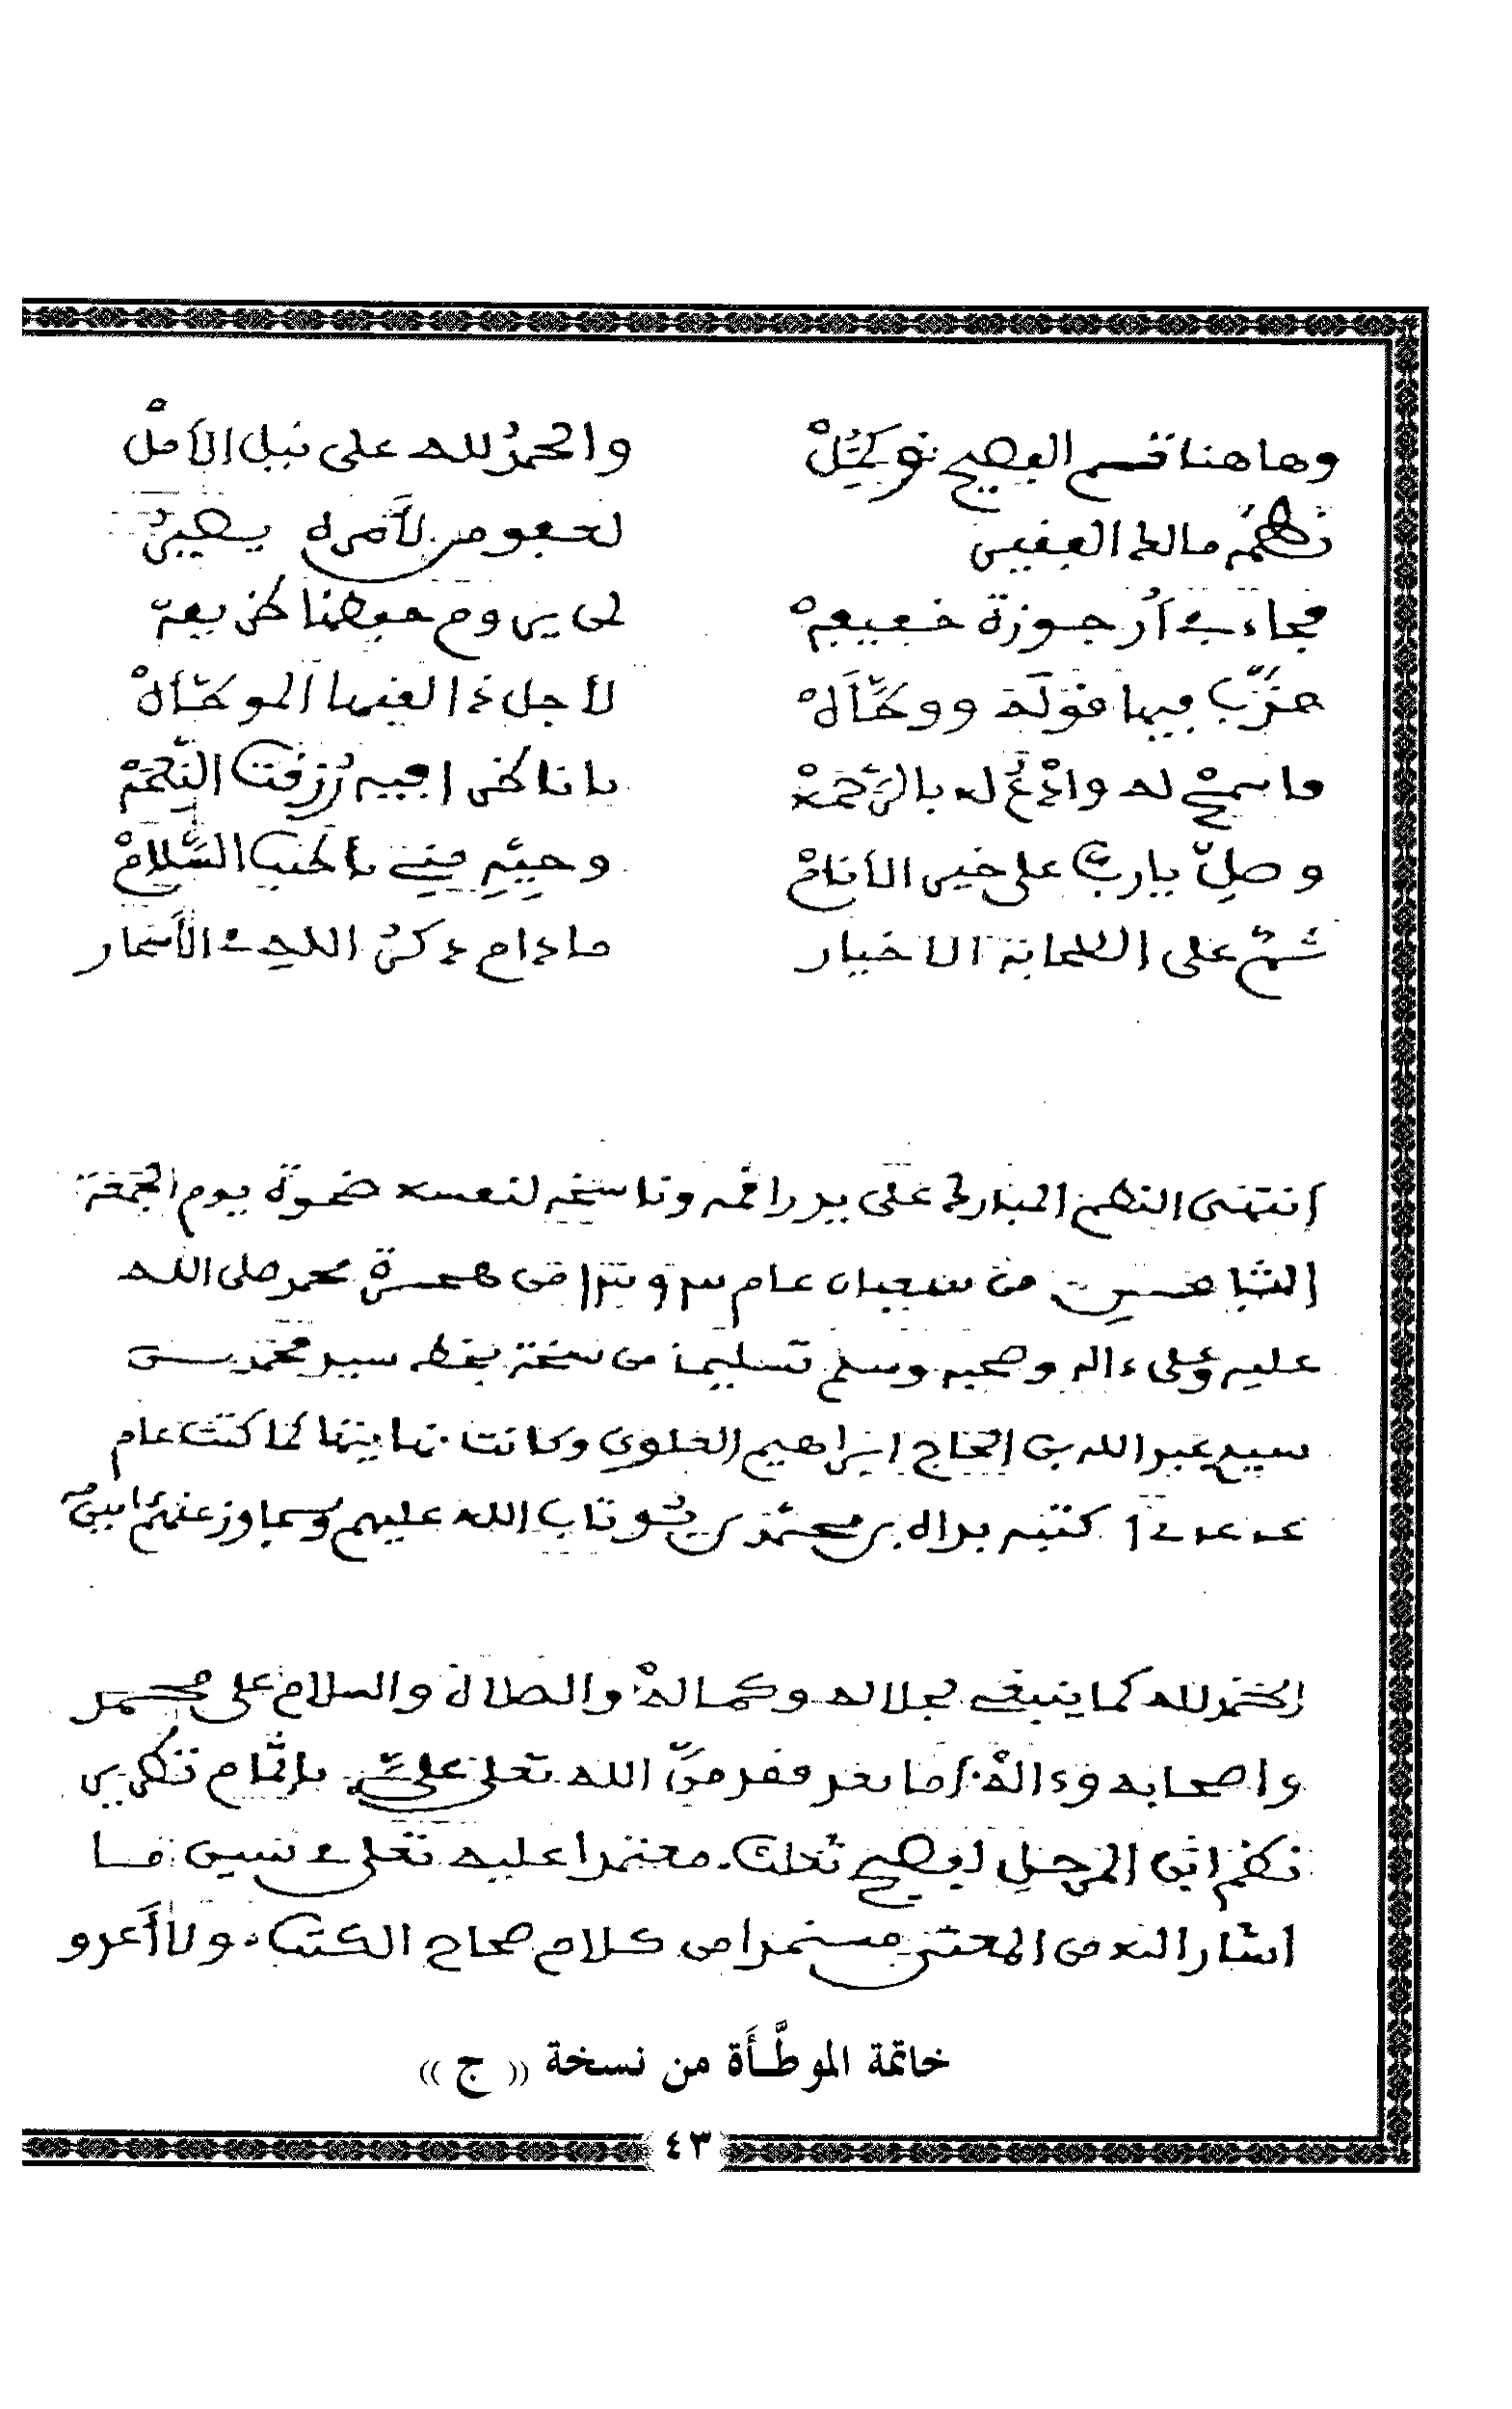 وها هنا تم الفصيح توكمل والحمد لله على نيل الأمل
نظمه مالك الفقير لعفو من لأمره يصير
فجاء في أرجوزة خفيفه لمن يروم حفظها
هذب فيها قوله ووطأه لأجل ذا لقبها الموطأه
فاسمح له وادع له بالرحمه يا ناظرا فيه رزقت النعمه
وصل يا رب على خير الأنام وحيه مني بأطيب السلام
ثم على الصحابة الاخيار ما دام ذكر الله في الأسحار
انتهى النظم المبارك على يد راقمه وناسخه لنفسه ضحوة يوم الجمعة
من شعبان عام من هجرة محمد صلى الله
عليه وعلى ءاله وصحبه وسلم تسليما من نسخة بخط سيد محمد بن
سيد عبد الله بن الحاج ابراهيم العلوي وكانت نهايتها كما كتب عام
كتبه بداه بن محمد بن تاب الله عليهم وتجاوز عنهم ءامين
الحمد لله كما ينبغي لجلاله وكماله والصلاة والسلام على محمد
واصحابه وءاله أما بعد فقد من الله تعلى علي بإتمام تكرير
نظم ابن المرحل لفصيح ثعلب معتمدا عليه تعلى في تبيين ما
اشار اليه من المعنى مستمدا من كلام صحاح الكتب ولا أعزو
خاتمة الموطَّأَة من نسخة (( ج ))
٤٣